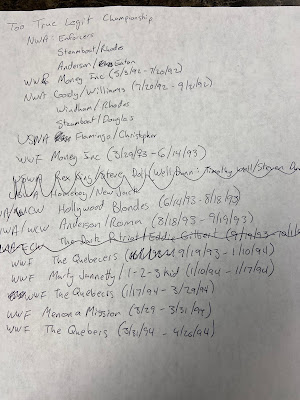 Too True Legit Championship
NWA: Enforcers
Steamboat/Rhodes
Anderson/Eaton
WWF Money Inc (5/3/92 - 7/20/92)
NWA Goody/Williams (7/20/92 - 9/21/92)
Windham/Rhodes
Steamboat/Douglas
USWA Flamingo/Christopher
WWF Money Inc (3/29/93 - 6/14/93)
USWA Rex King/Steve Doll/Well Dunn: Timothy Well/Steven Dunn
USWA New Jack
WCW Hollywood Blondes (6/14/93 - 8/18/93)
NWA/WCW Anderson/Roma (8/18/93 - 9/19/93)
ECW The Dark Patriot/Eddie Gilbert (9/19/93 -
WWF The Quebecers 9/19/93 - 1/10/94)
WWF Marty Jannetty/1-2-3 Kid (1/10/94 - 1/17/94)
WWF The Quebecers (1/17/94 - 3/29/94)
WWF Men on a Mission (3/29 - 3/31/94)
WWF The Quebers (3/31/94 - 4/26/94)